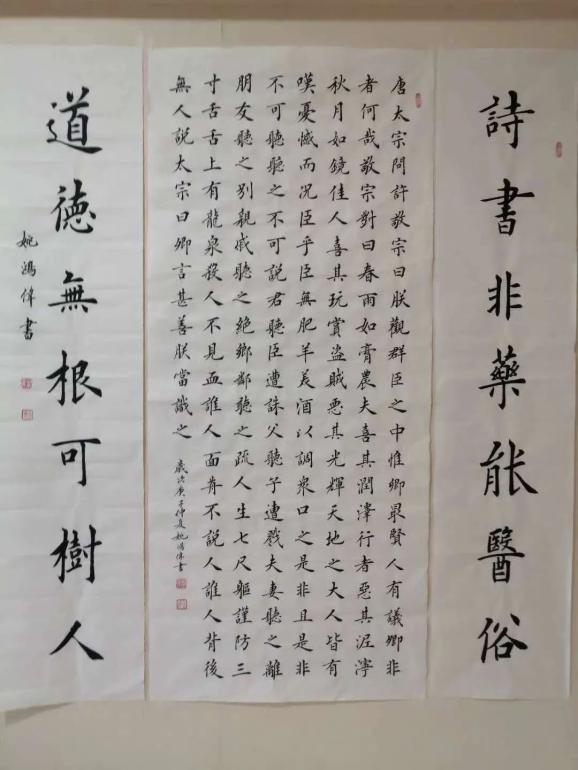 詩書非藥能醫俗
唐太宗問許敬宗曰朕觀群臣之中惟卿最賢人有議卿非
者何哉敬宗對曰春雨如膏農夫喜其潤澤行者惡其泥濘
秋月如鏡佳人喜其玩賞盜賊惡其光輝天地之大人皆有
嘆憂憾而况臣乎臣無肥羊美酒以調衆口之是非且是非
不可聽聽之不可說君聽臣遭誅父聽子遭戮夫妻聽之離
朋友聽之別親戚聽之絕鄉鄰聽之疏人生七尺軀謹防三
寸舌舌上有龍泉殺人不見血誰人面前不說人誰人背後
無人說太宗曰卿言甚善朕當識之 歲次庚子仲夏姚鴻偉書
道德無根可樹人
姚鴻偉書